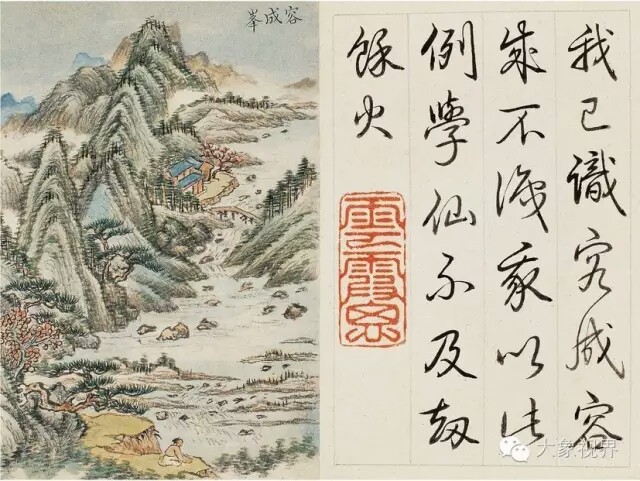 容成峯
我已識容成容
成不識我以此
例學仙不及劫
餘火
雲霞思
大象视界